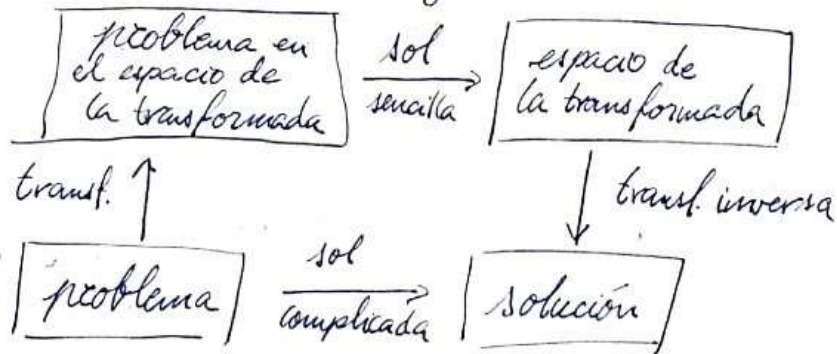 problema en
el espacio de
la transformada
sol
sencilla
espacio de
la transformada
transf.
transf. inversa
problema
sol
complicada
solución